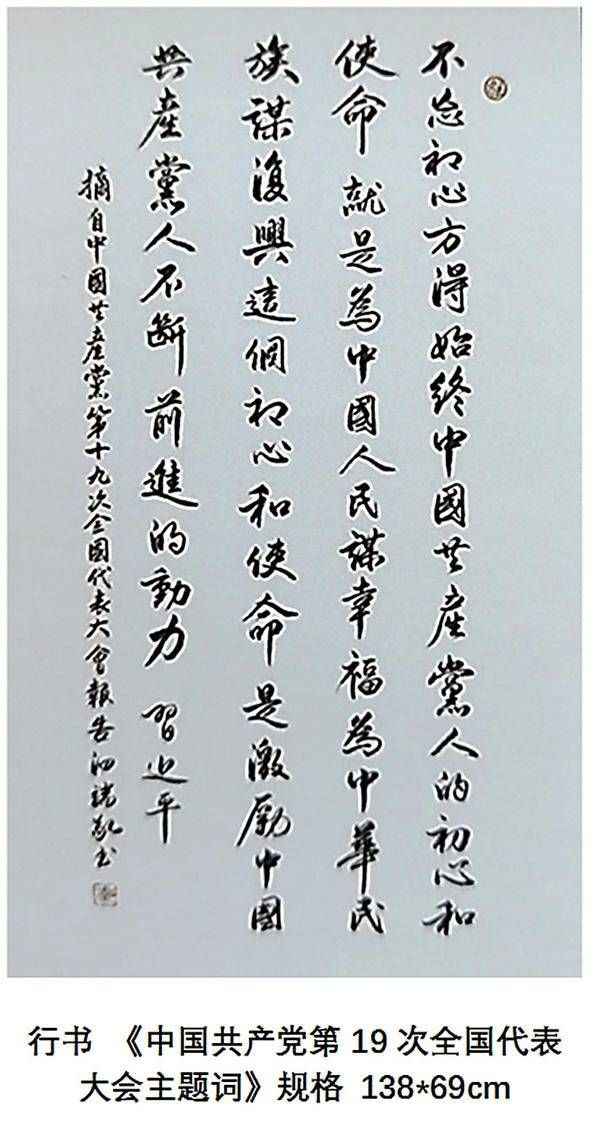 不忘初心方得始终中國共産黨人的初心和
使命就是為中國人民謀幸福為中華民
族謀復興這個初心和使命是激勵中國
共産黨人不斷前進的動力 習近平
摘自中國共産黨第十九次全國代表大會報告 瑞凱书
行书 《中国共产党第 19 次全国代表
大会主题词》规格 138*69cm